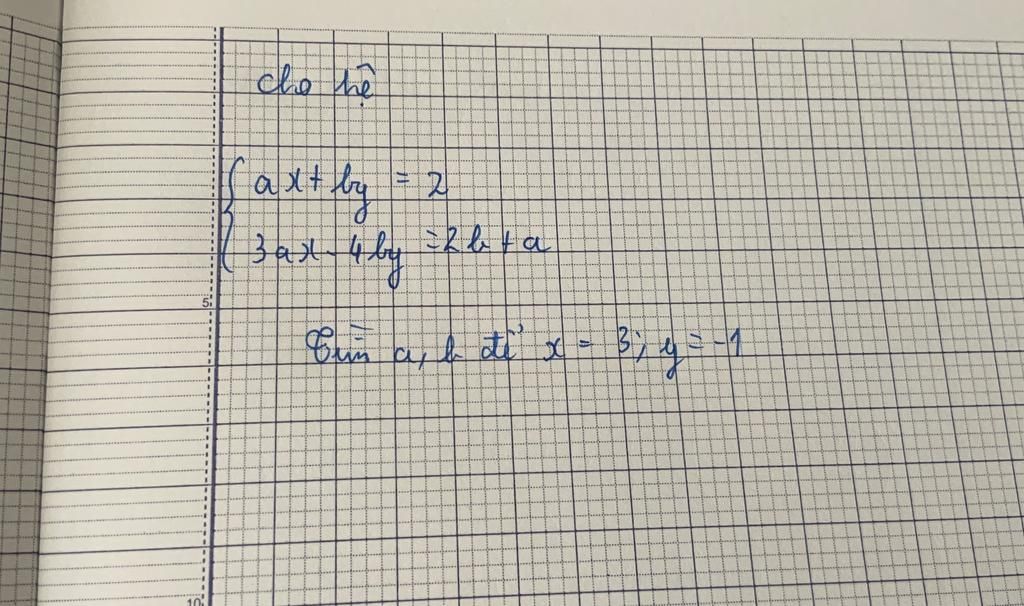 cho hệ
ax + by = 2
3ax - 4by = 2b + a
5
Tìm a, b để x = 3; y = -1
10